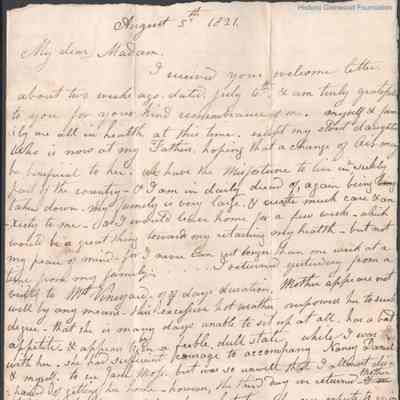 Historic Glenwood Foundation
August 5th 1821.
My dear Madam.
I received your welcome letter
about two weeks ago, date, July 6th, & am truly grateful
to you for your kind remembrance of me. myself & fam
ily are all in health at this time. except my eldest daughter
Who is now at my Father, hoping that a change of Air may
be beneficial to her. We have the Misfortune to live in sickly
part of the country - & I am in daily dread of again being
taken down. My family is very large. & create much care & an
xiety to me. - did I could leave home for a few weeks - which
would be a great thing toward my retaining my health - but not
my peace of mind - for I never can get longer than one week at a
time from my family. . . . . I returned yesterday from a
visit to Mrs Vineyard, of 8 days duration. Mother appears not
well by any means. this excessive hot weather, overpower her to such
degree. that she is many days unable to set up at all. has a bad
appetite & appears in a feeble, dull state. while I was
with her, she had sufficient courage to accompany Nancy Daniel
& myself. to see Jane Moss. but was so unwell that I almost
of getting her home - however, the third day we returned